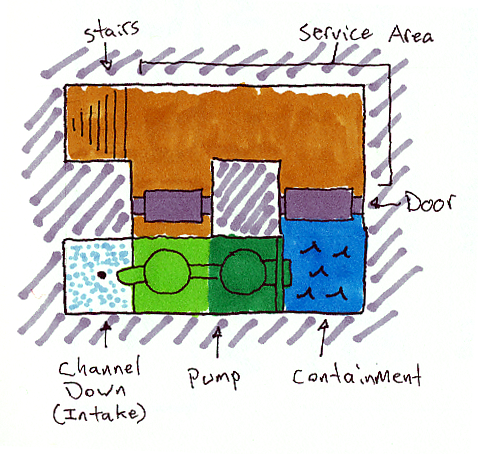 stairs
Service Area
Door
Channel
Down
(Intake)
Pump
Containment